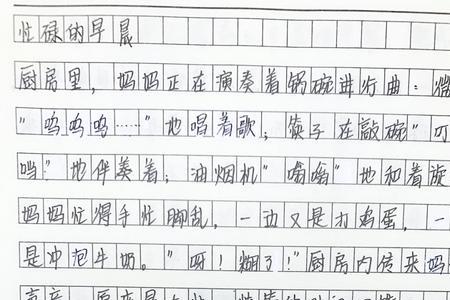 忙碌的早晨
厨房里，妈妈正在演奏着锅碗进行曲：微
“呜呜呜……”地唱着歌；筷子在敲碗“叮
当”地伴奏着；油烟机“嗡嗡”地和着旋
妈妈忙得手忙脚乱，一边又是打鸡蛋，一
是冲泡牛奶。“呀！糊了！”厨房内传来妈